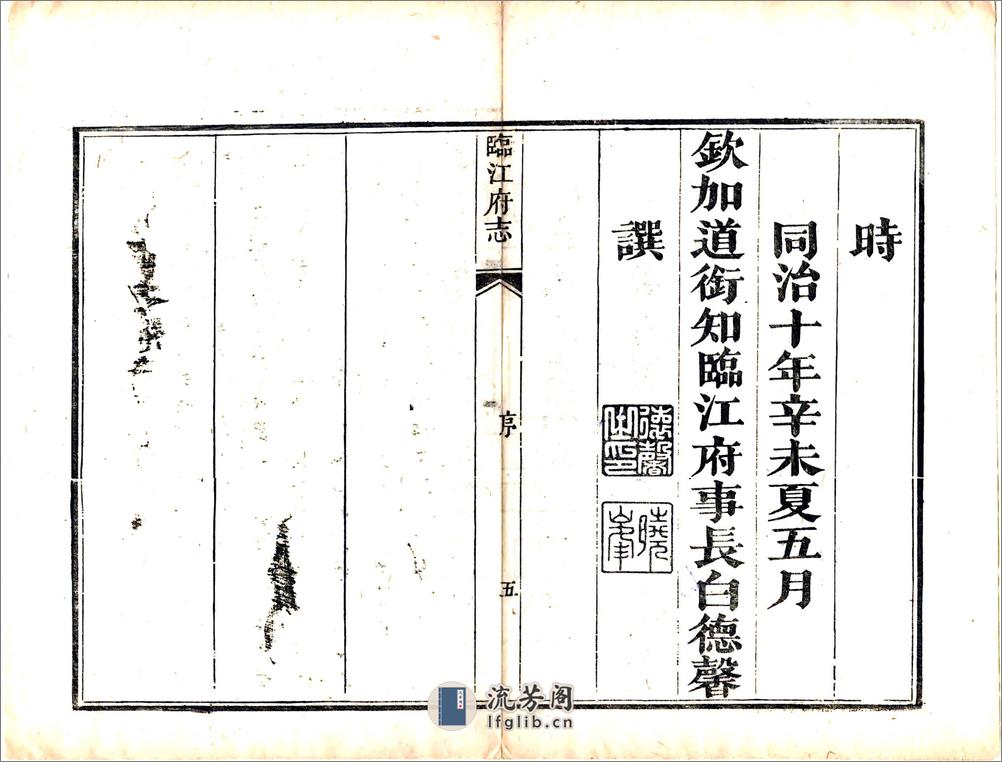 時
同治十年辛未夏五月
欽加道銜知臨江府事長白德馨
譔
德馨之印
曉峯
臨江府志
序
五
流芳阁
lfglib.cn